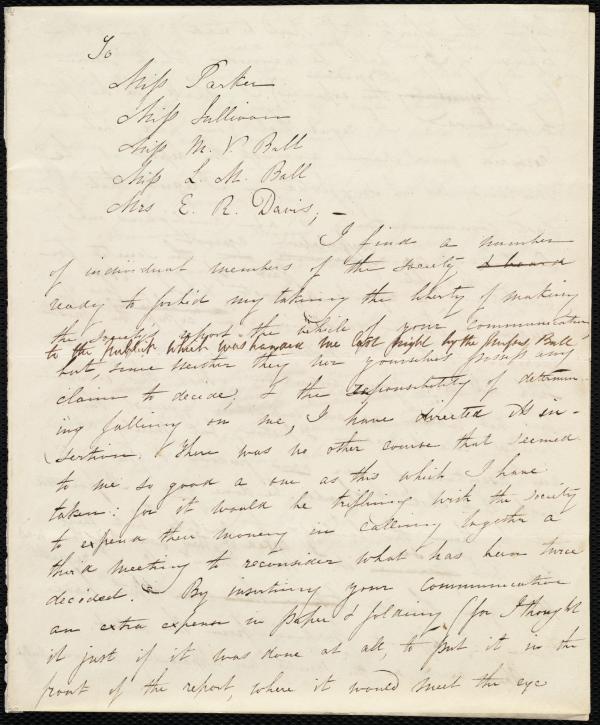 To
Miss Parker
Miss Sullivan
Miss M. V. Ball
Miss L. M. Ball
Mrs E. R. Davis, –
I find a number
of individual members of the society & board
ready to forbid my taking the liberty of making
the report the vehicle of your communication
to the publick which was handed me last night by the Misses Ball
but, since neither they nor yourselves possess any
claim to decide, & the responsibility of determin-
ing falling on me, I have directed its in-
sertion. There was no other course that seemed
to me so good a one as this which I have
taken: for it would be trifling with the society
to expend their money in calling together a
third meeting to reconsider what has been twice
decided. By inserting your communication
an extra expense in paper & folding (for I thought
it just if it was done at all, to put it in the
front of the report, where it would meet the eye